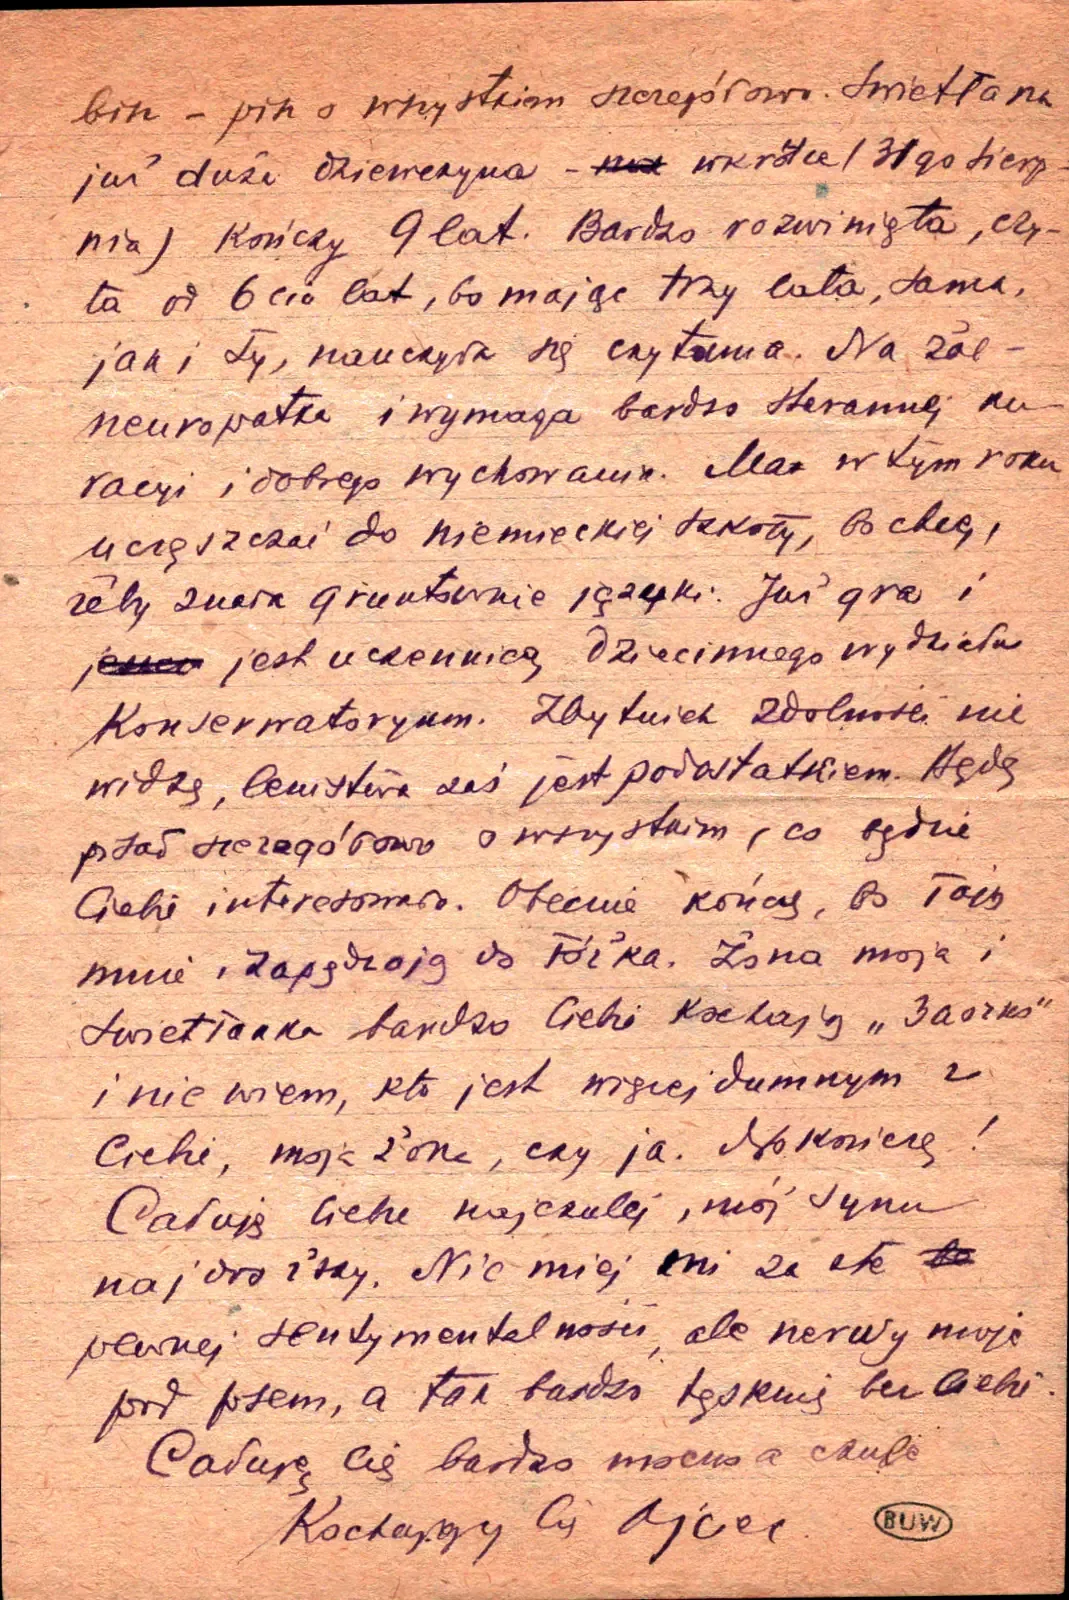 bisz – pisz o wszystkim szczegółowo. Swietłana
już duża dziewczyna – wkrótce (31 go Sierp-
nia) kończy 9 lat. Bardzo rozwinięta, czy-
ta od 6 cio lat, bo mając trzy lata, sama,
jak i Ty, nauczyła się czytania. Na żal –
neuropatka i wymaga bardzo starannej ku-
racyi i dobrego wychowania. Ma w tym roku
uczęszczać do niemieckiej szkoły, bo chcę,
żeby znała gruntownie języki. Już gra i
jest uczennicą dziecinnego wydziału
Konserwatoryum. Zbytnich zdolności nie
widzę, lenistwa zaś jest podostatkiem. Będę
pisał szczegółowo o wszystkim, co będzie
Ciebie interesowało. Obecnie kończę, bo łają
mnie i zapędzają do łóżka. Żona moja i
Swietłanka bardzo Ciebie kochają „заочно”
i nie wiem, kto jest więcej dumnym z
Ciebie, moja żona, czy ja. No kończę!
Całuję Ciebie najczulej, mój synu
najdroższy. Nie miej mi za złe
pewnej sentymentalności, ale nerwy moje
pod psem, a tak bardzo tęsknię bez Ciebie.
Całuję Cię bardzo mocno a czule
Kochający Cię Ojciec.
BUW